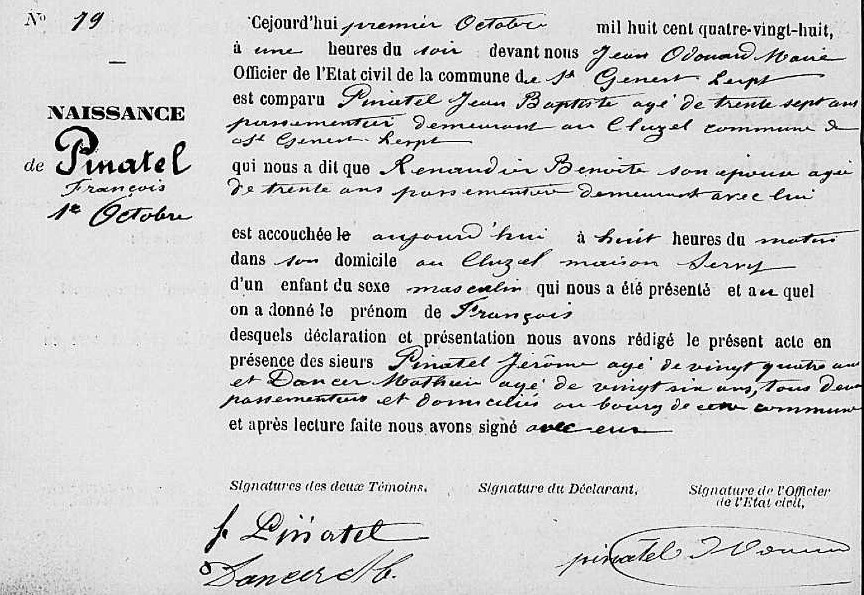 N° 79
NAISSANCE
de Pinatel
François
1er Octobre
Cejourd'hui premier Octobre mil huit cent quatre-vingt-huit,
à une heures du soir devant nous Jean Odouard Maire
Officier de l'Etat civil de la commune de St Genest Lerpt
est comparu Pinatel Jean Baptiste agé de trente sept ans
passementier demeurant au Cluzel commune de
St Genest Lerpt
qui nous a dit que Renaudier Benoite son épouse agée
de trente ans passementière demeurant avec lui
est accouchée le aujourd'hui à huit heures du matin
dans son domicile au Cluzel maison
d'un enfant du sexe masculin qui nous a été présenté et au quel
on a donné le prénom de François
desquels déclaration et présentation nous avons rédigé le présent acte en
présence des sieurs Pinatel Jérôme agé de vingt quatre ans
et Dancer Mathieu agé de vingt six ans, tous deux
passementiers et domiciliés au bourg de cette commune
et après lecture faite nous avons signé avec eux
Signatures des deux Témoins, Signature du Déclarant, Signature de l'Officier
de l'Etat civil,
Pinatel
Dancer pinatel